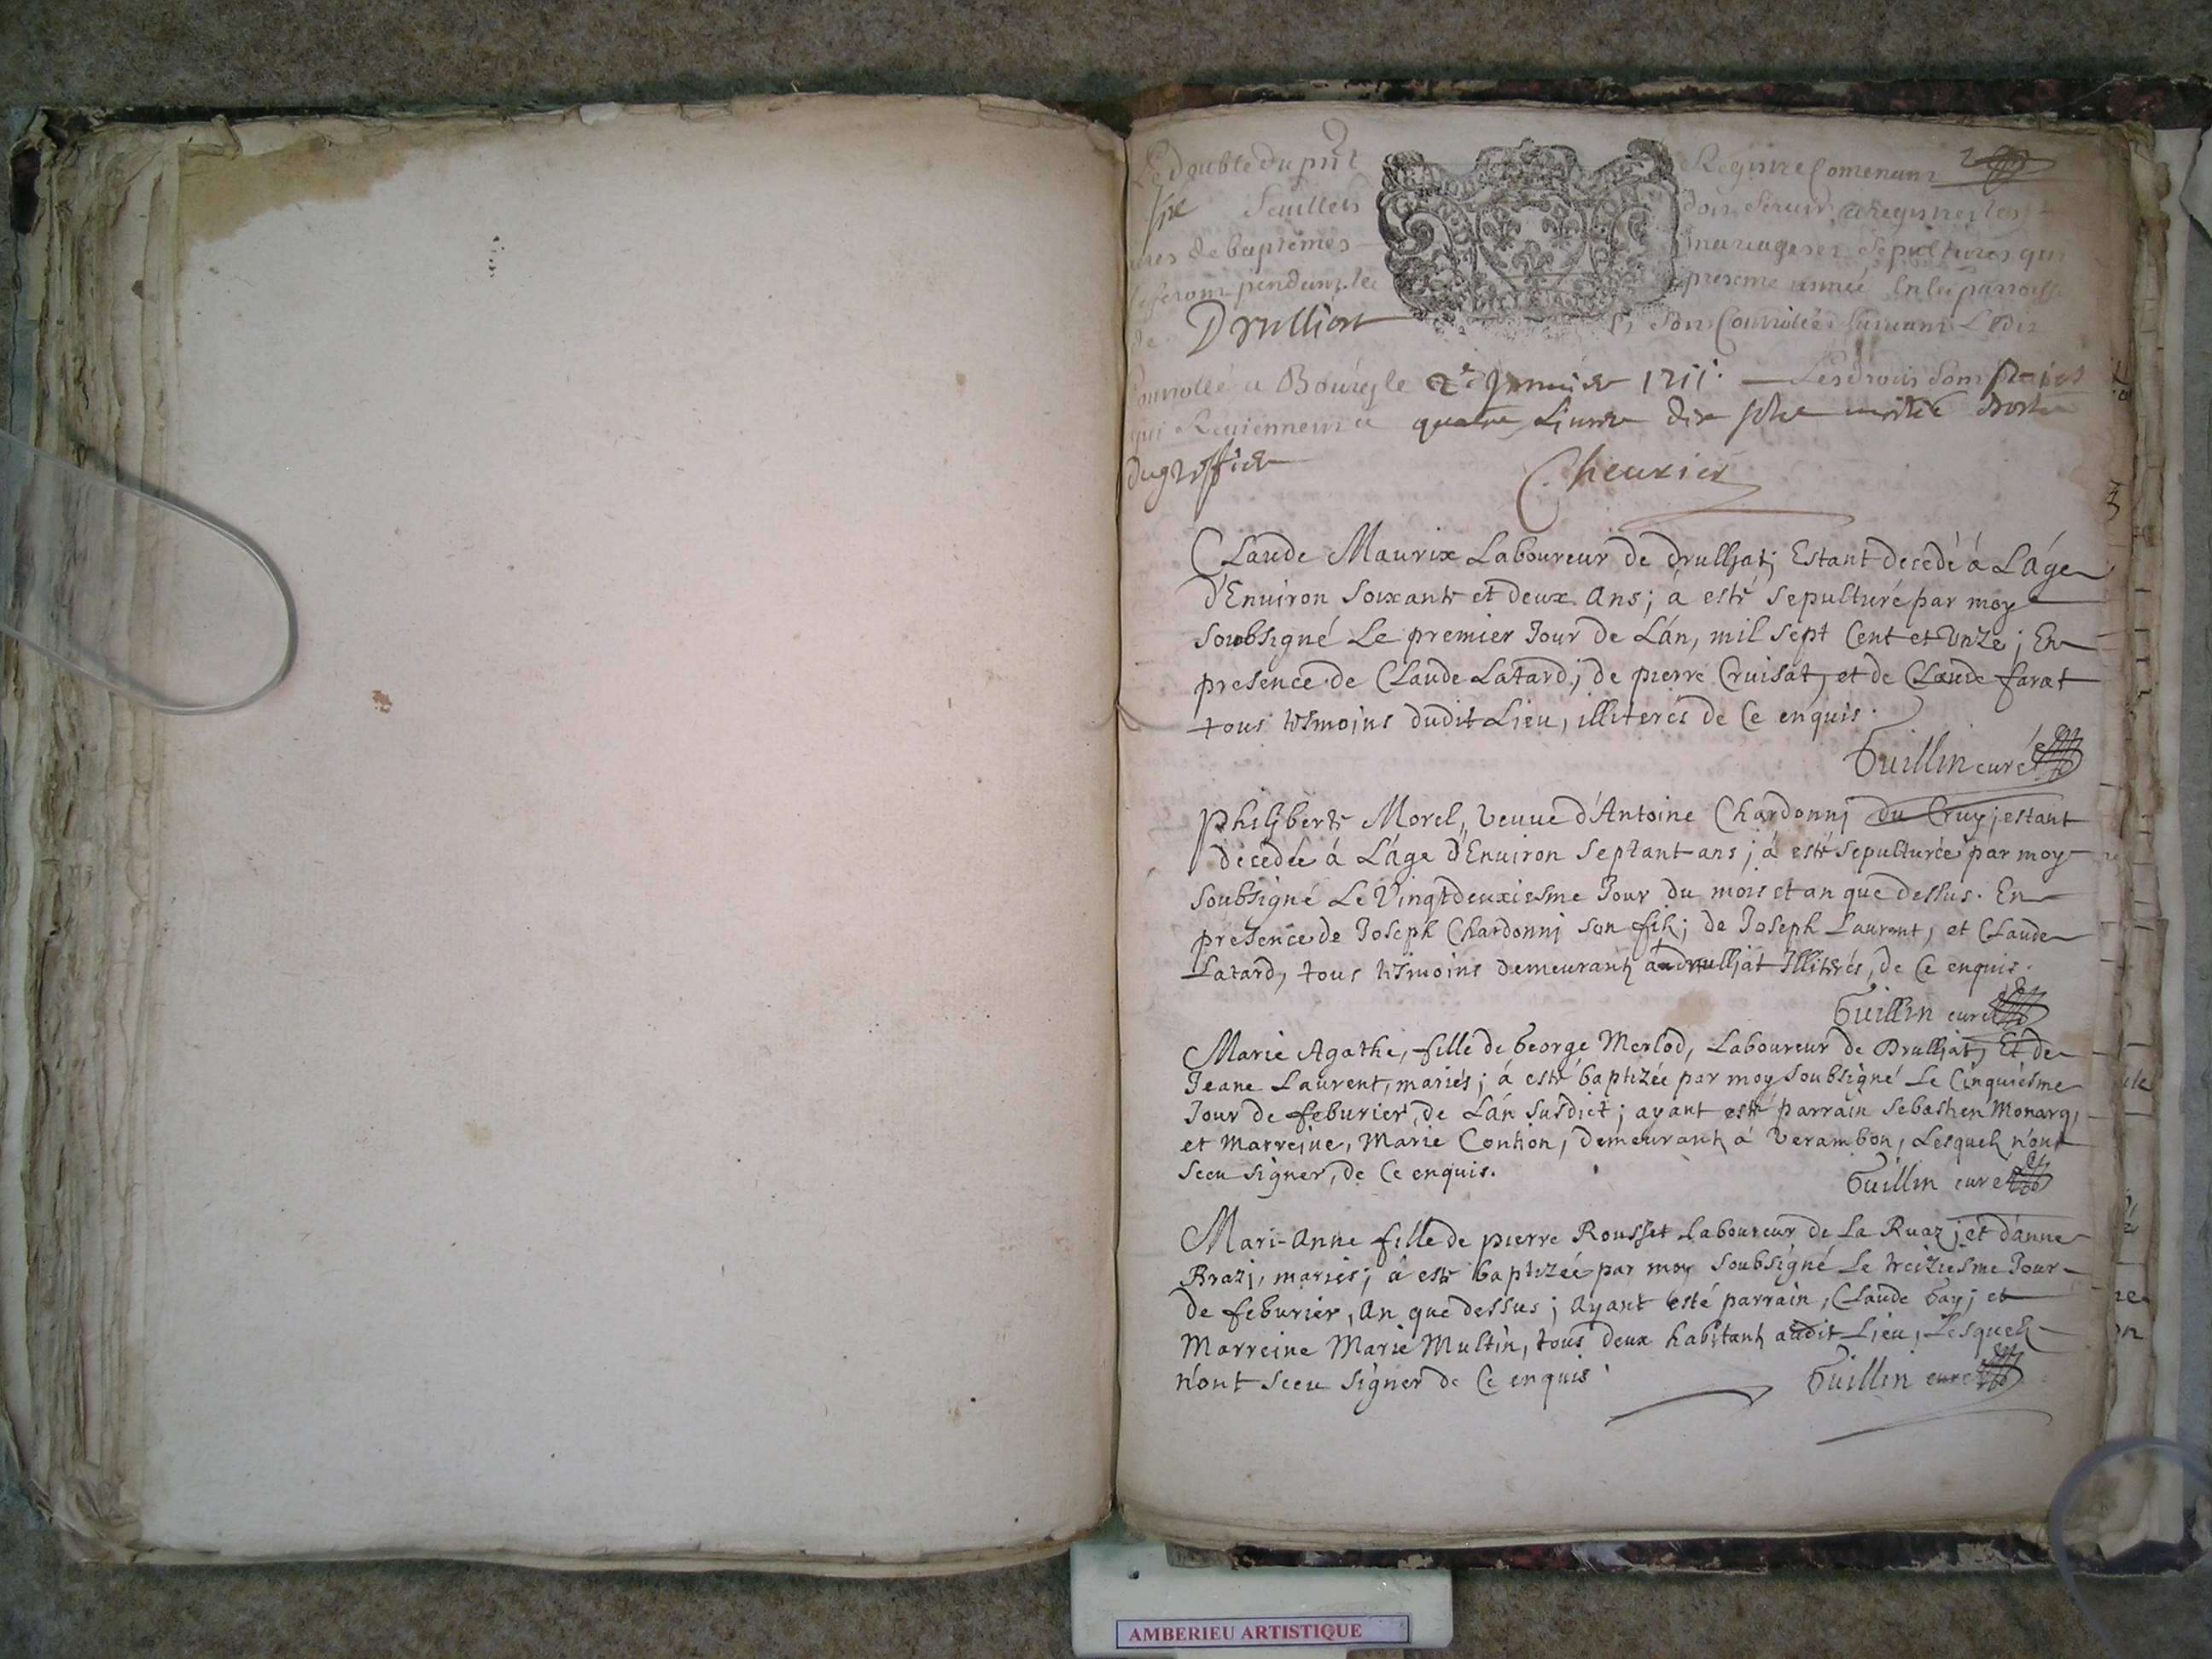 Le double du pnt Registre Contenant
Six feuillets dois servir a registrer les
actes de baptêmes mariages et Sepultures qui
se feront pendant la presente année En la parroisse
de Drulliat Et Sont Conttrollés suivant L'Edit
Conttrollé a Bourg le 2e Janvier 1711. Les droits sont payés
qui Reviennent a quatre Livres dix sols
du greffier
Cheurier
Claude Maurix Laboureur de drulliat; Estant decedé á L'áge
d'Enuiron soixante et deux Ans; á esté sepulturé par moy
soubsigné Le premier Jour de L'án, mil sept Cent et Unze; En
presence de Claude Latard; de pierre Cruisat, et de Claude farat
tous tesmoins dudit Lieu, illiterés de Ce enquis.
Guillin curé
Philiberte Morel, veuue d'Antoine Chardonnj du Cruy; estant
decédée á L'áge d'Enuiron septant ans; á esté sepulturée par moy
soubsigné Le Vingtdeuxiesme Jour du mois et an que dessus. En
presence de Joseph Chardonnj son fils; de Joseph Laurent, et Claude
Latard, tous tesmoins demeurants a drulliat Illiterés, de Ce enquis.
Guillin curé
Marie Agathe, fille de George Merlod, Laboureur de Drulliat, Et de
Jeane Laurent, mariés; á esté baptizée par moy soubsigné Le Cinquiesme
Jour de feburier, de L'án susdict; ayant esté parrain Sebastien Monarq,
et Marreine, Marie Contion, demeurants á Verambon, Lesquels n'ont
sceu signer, de Ce enquis.
Guillin curé
Mari-Anne fille de pierre Rousset Laboureur de La Ruaz; et d'anne
Brazj, mariés; á esté baptizée par moy soubsigné Le treiziesme Jour
de feburier, An que dessus; Ayant esté parrain, Claude Gay; et
Marreine Marie Multin, tous deux habitants audit Lieu, Lesquels
n'ont sceu signer de Ce enquis
Guillin curé
AMBERIEU ARTISTIQUE